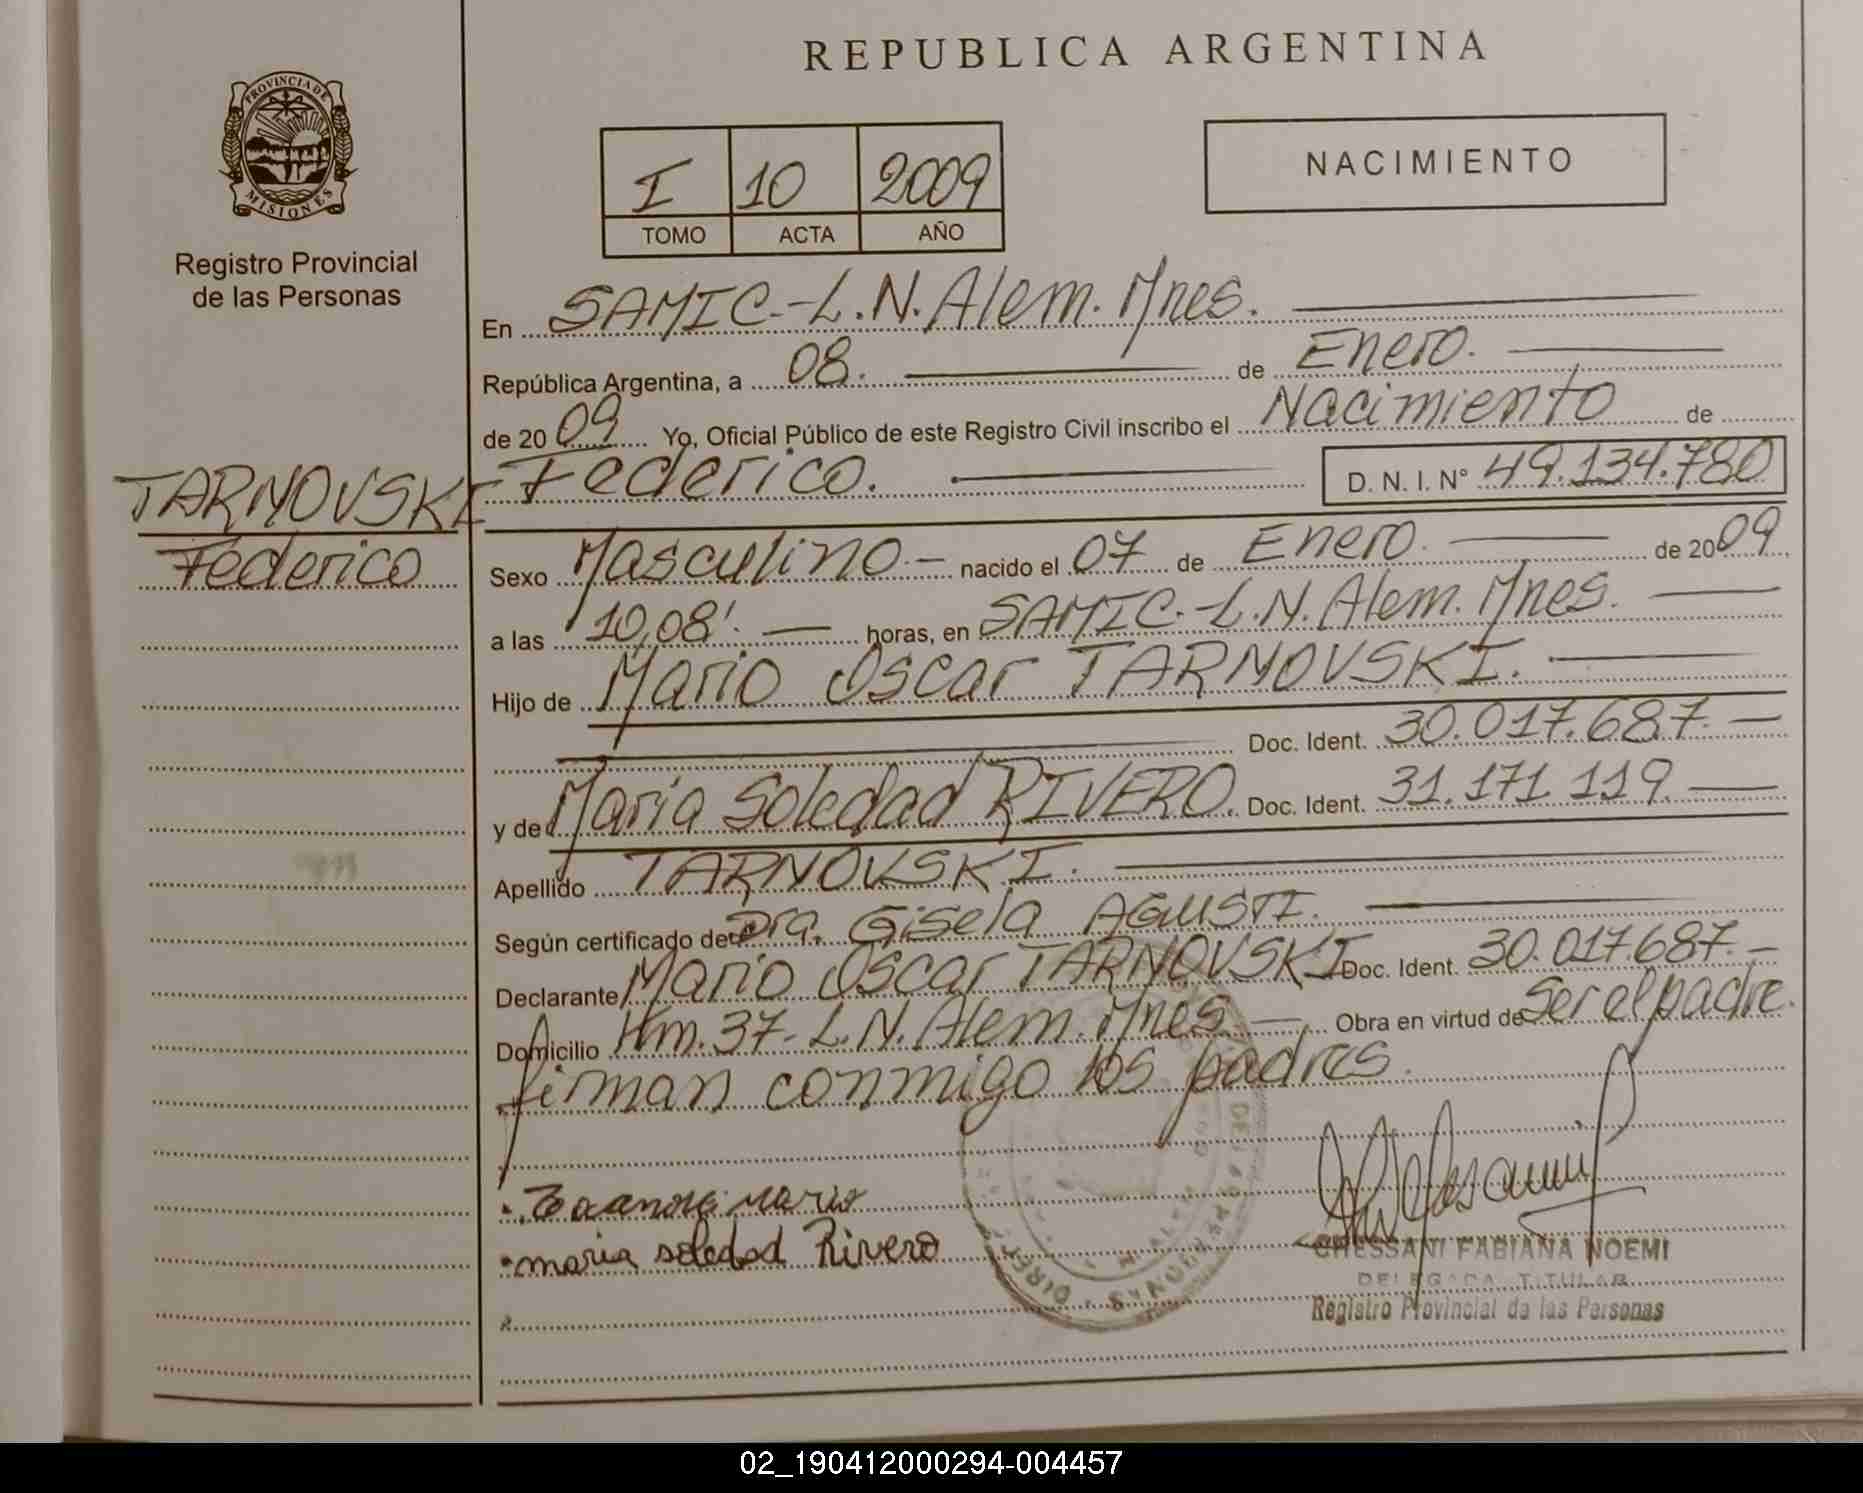 REPUBLICA ARGENTINA
PROVINCIA DE
MISIONES
Registro Provincial
de las Personas
I 10 2009
TOMO ACTA AÑO
NACIMIENTO
En SAMIC.-L.N.Alem.Mnes.
República Argentina, a 08. de Enero.
de 2009 Yo, Oficial Público de este Registro Civil inscribo el Nacimiento de
Federico. D. N. I. N° 49.134.780
TARNOVSKI
Federico
Sexo Masculino - nacido el 07 de Enero. de 2009
a las 10,08'. horas, en SAMIC.-L.N.Alem.Mnes.
Hijo de Mario Oscar TARNOVSKI.
Doc. Ident. 30.017.687.-
y de Maria Soledad RIVERO. Doc. Ident. 31.171.119.
Apellido TARNOVSKI.
Según certificado de Dra. Gisela AGUSTI.
Declarante Mario Oscar TARNOVSKI Doc. Ident. 30.017.687.-
Domicilio Km.37-L.N.Alem.Mnes - Obra en virtud de Ser el padre.
firman conmigo los padres.
maria soledad Rivero
CHESSANI FABIANA NOEMI
DELEGADA TITULAR
Registro Provincial de las Personas
02_190412000294-004457